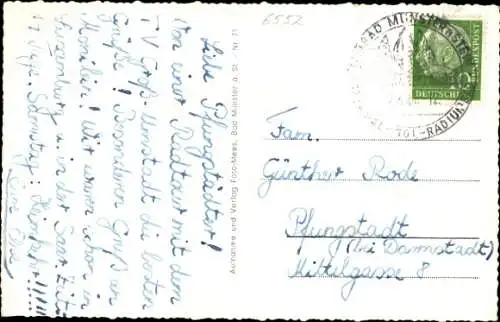 6552
Liebe Pfungstädter!
Von einer Radtour mit dem
TV Groß-Umstadt die besten
Grüße! Besonderen Gruß an
Monika! Wir waren schon in
Luxemburg u. in der Saar. Zeit
Samstag: Heimfahrt!!!!
Aufnahme und Verlag Foto-Mees, Bad Münster a. St. Nr. 21
BAD MÜNSTER
RADIUM
DEUTSCHE
BUNDESPOST
Fam.
Günther Rode
Pfungstadt
(bei Darmstadt)
Mittelgasse 8